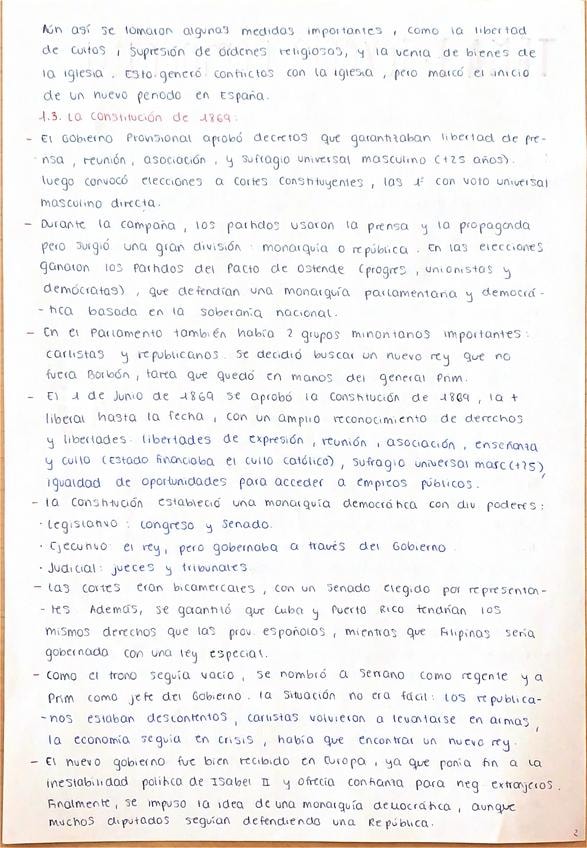 Aún así se tomaron algunas medidas importantes, como la libertad
de cultos, supresión de órdenes religiosos, y la venta de bienes de
la iglesia. Esto generó conflictos con la iglesia, pero marcó el inicio
de un nuevo periodo en España.
1.3. La constitución de 1869:
- El Gobierno Provisional aprobó decretos que garantizaban libertad de pre-
nsa, reunión, asociación, y sufragio universal masculino (+25 años).
luego convocó elecciones a cortes constituyentes, las 1ª con voto universal
masculino directa.
- Durante la campaña, los partidos usaron la prensa y la propaganda
pero surgió una gran división: monarquía o república. En las elecciones
ganaron los partidos del Pacto de Ostende (progres, unionistas y
demócratas), que defendían una monarquía parlamentaria y democrá-
- tica basada en la soberanía nacional.
- En el Parlamento también había 2 grupos minoritarios importantes:
carlistas y republicanos. Se decidió buscar un nuevo rey que no
fuera Borbón, tarea que quedó en manos del general Prim.
- El 1 de Junio de 1869 se aprobó la constitución de 1869, la +
liberal hasta la fecha, con un amplio reconocimiento de derechos
y libertades: libertades de expresión, reunión, asociación, enseñanza
y culto (estado financiaba el culto católico), sufragio universal masc (+25),
igualdad de oportunidades para acceder a empleos públicos.
- la constitución estableció una monarquía democrática con div poderes:
· Legislativo: congreso y Senado.
· Ejecutivo: el rey, pero gobernaba a través del Gobierno.
· Judicial: jueces y tribunales.
- Las cortes eran bicamerales, con un senado elegido por representan-
- tes. Además, se garantizó que Cuba y Puerto Rico tendrían los
mismos derechos que las prov. españolas, mientras que Filipinas sería
gobernada con una ley especial.
- Como el trono seguía vacío, se nombró a Serrano como regente y a
Prim como jefe del Gobierno. la situación no era fácil: los republica-
- nos estaban descontentos, carlistas volvieron a levantarse en armas,
la economía seguía en crisis, había que encontrar un nuevo rey.
- El nuevo gobierno fue bien recibido en Europa, ya que ponía fin a la
inestabilidad política de Isabel II y ofrecía confianza para neg extranjeros.
Finalmente, se impuso la idea de una monarquía democrática, aunque
muchos diputados seguían defendiendo una República.
2